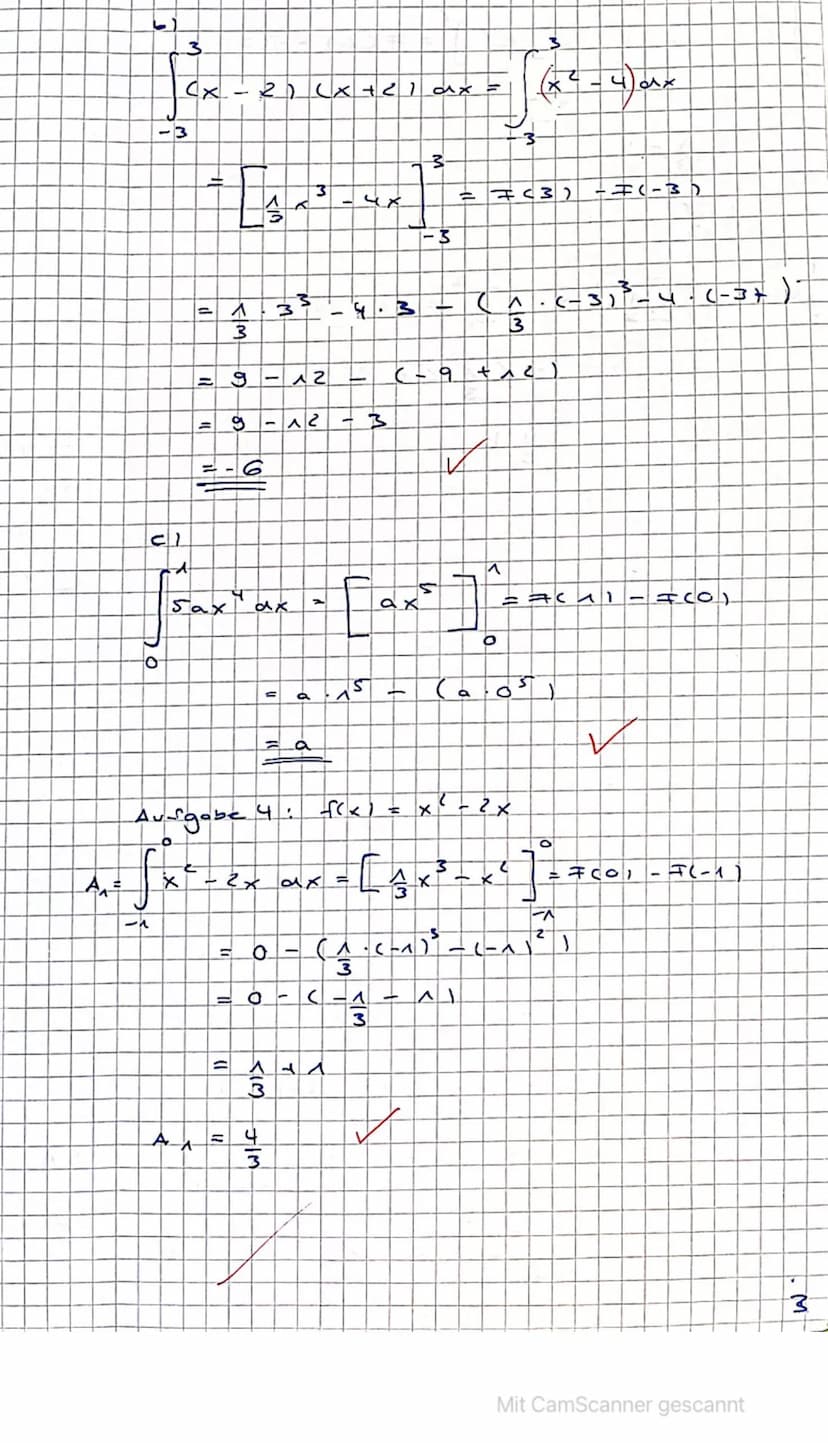 b)
∫₋₃³ (x - 2) (x + 2) dx = ∫₋₃³ (x² - 4) dx
= [1/3 x³ - 4x]₋₃³ = F(3) - F(-3)
= 1/3 · 3³ - 4 · 3 - (1/3 · (-3)³ - 4 · (-3))
= 9 - 12 - (-9 + 12)
= 9 - 12 - 3
= -6 ✓
c)
∫₀¹ 5ax⁴ dx = [ax⁵]₀¹ = F(1) - F(0)
= a · 1⁵ - (a · 0⁵)
= a ✓
Aufgabe 4: f(x) = x² - 2x
A₁ = ∫₋₁⁰ x² - 2x dx = [1/3 x³ - x²]₋₁⁰ = F(0) - F(-1)
= 0 - (1/3 · (-1)³ - (-1)²)
= 0 - (-1/3 - 1)
= 1/3 + 1
A₁ = 4/3 ✓
3
Mit CamScanner gescannt